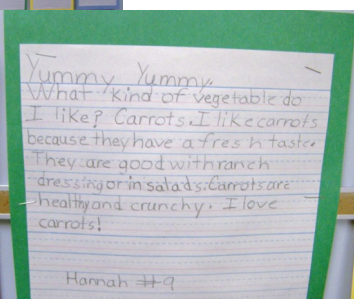 Yummy Yummy.
What kind of vegetable do
I like? Carrots. I like carrots
because they have a fresh taste.
They are good with ranch
dressing or in salads. Carrots are
healthy and crunchy. I love
carrots!
Hannah #9